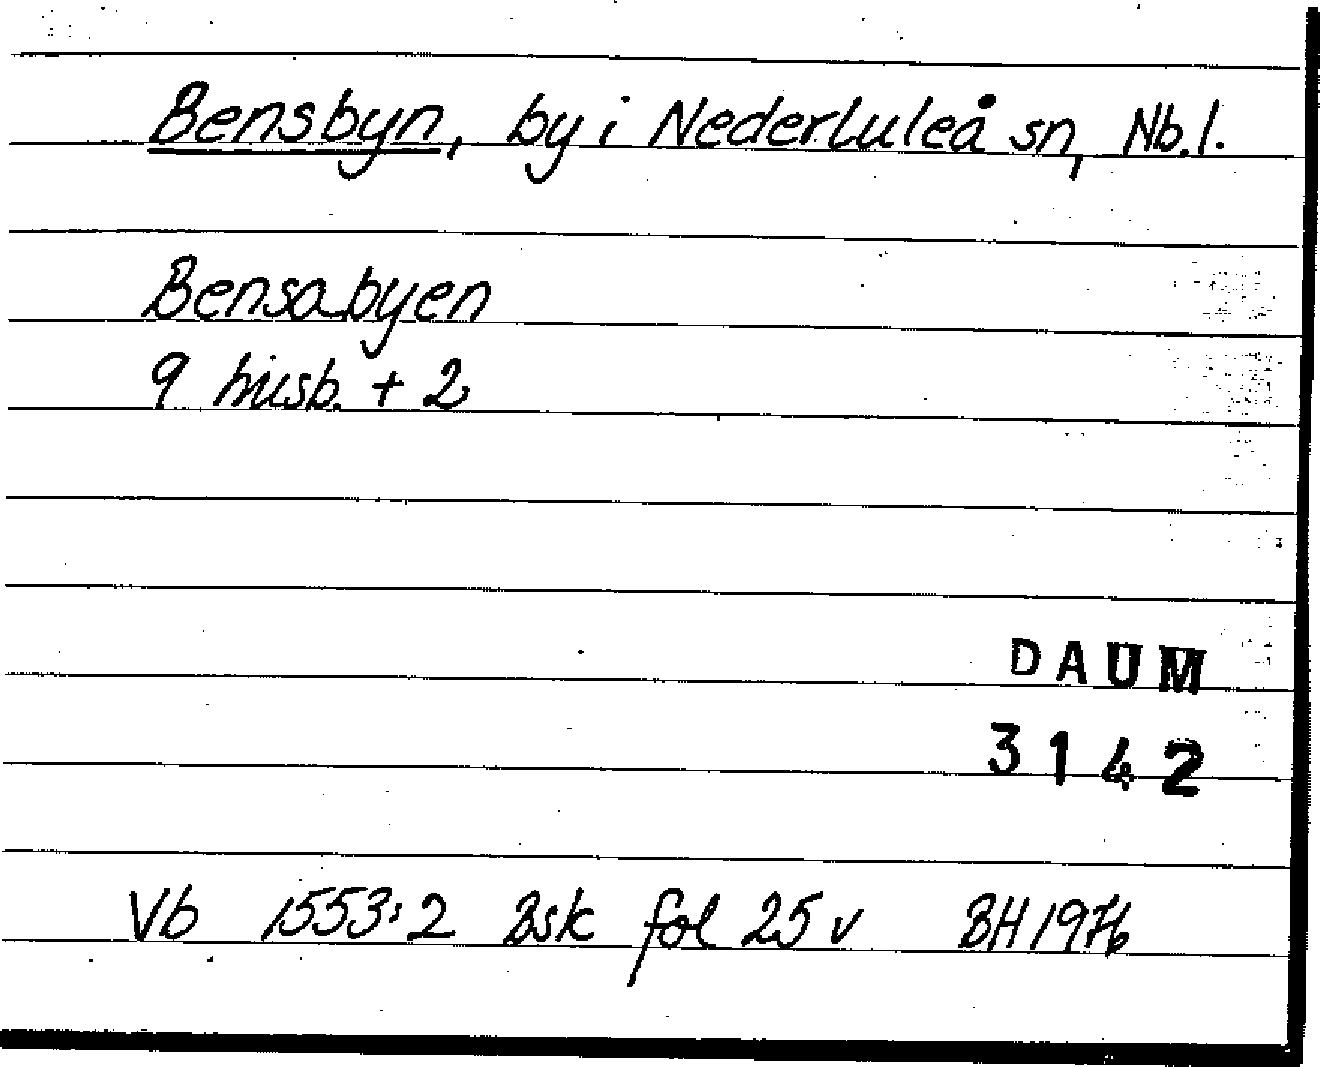 Bensbyn, by i Nederluleå sn, Nb.l.
Bensabyen
9 husb. + 2
DAUM
3142
Vb 1553:2 Bsk fol 25 v BH 1976